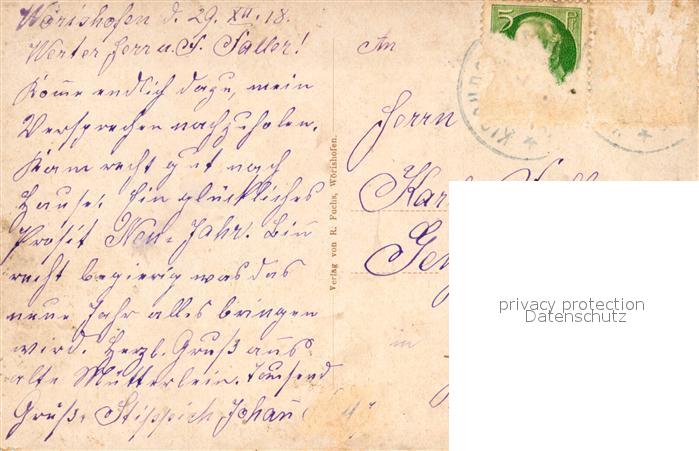 Wörishofen d. 29. XII. 18.
Werter Herr u. F. Saller!
Komme endlich dazu, mein
Versprechen nachzuholen.
Kam recht gut nach
Hause. Ein glückliches
Prosit Neu-Jahr. Bin
recht begierig was das
neue Jahr alles bringen
wird. Herzl. Gruß ans
alte Mütterlein. Tausend
Grüße Johan
Verlag von R. Fuchs, Wörishofen.
5 Pf
An
Herrn
Karl
in
privacy protection
Datenschutz